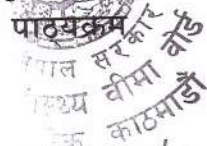 पाठ्यक्रम
नेपाल सरकार
स्वास्थ्य बीमा बोर्ड
काठमाडौं